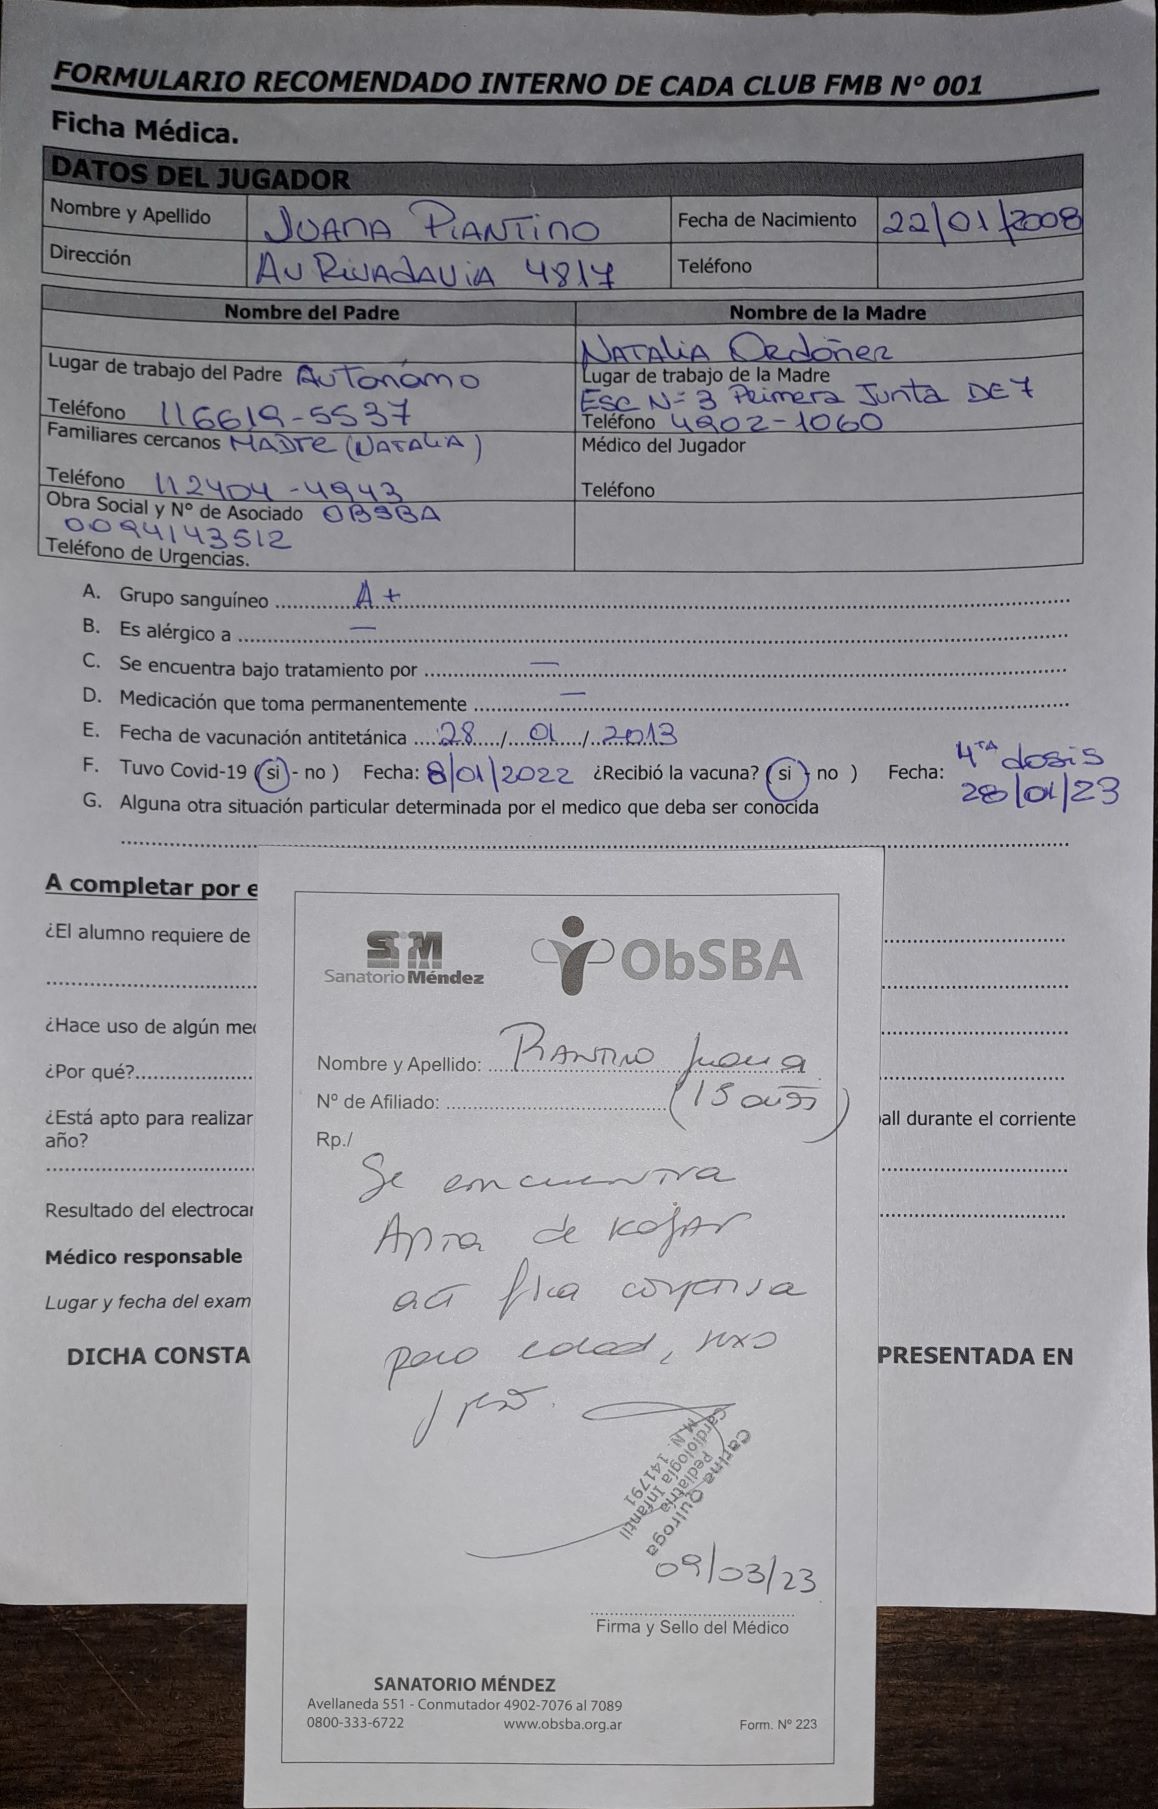 FORMULARIO RECOMENDADO INTERNO DE CADA CLUB FMB Nº 001
Ficha Médica.
DATOS DEL JUGADOR
Nombre y Apellido JUANA PIANTINO Fecha de Nacimiento 22/01/2008
Dirección AV RIVADAVIA 4817 Teléfono
Nombre del Padre Nombre de la Madre
NATALIA Ordóñez
Lugar de trabajo del Padre AUTONOMO Lugar de trabajo de la Madre
ESC Nº 3 Primera Junta DE 7
Teléfono 116619-5537 Teléfono 4902-1060
Familiares cercanos MADRE (NATALIA) Médico del Jugador
Teléfono 112404-4943 Teléfono
Obra Social y Nº de Asociado OBSBA
0094143512
Teléfono de Urgencias.
A. Grupo sanguíneo A +
B. Es alérgico a —
C. Se encuentra bajo tratamiento por —
D. Medicación que toma permanentemente —
E. Fecha de vacunación antitetánica 28 / 01 / 2013
F. Tuvo Covid-19 (si - no ) Fecha: 8/01/2022 ¿Recibió la vacuna? ( si - no ) Fecha: 4TA dosis
28/01/23
G. Alguna otra situación particular determinada por el medico que deba ser conocida
A completar por e
¿El alumno requiere de
¿Hace uso de algún me
¿Por qué?
¿Está apto para realizar all durante el corriente
año?
Resultado del electrocar
Médico responsable
Lugar y fecha del exam
DICHA CONSTA PRESENTADA EN
SM ObSBA
Sanatorio Méndez
Nombre y Apellido: PIANTINO Juana
Nº de Afiliado: (15 años)
Rp./
Se encuentra
Apta de
act física
para edad, sexo
y peso.
Carina Quiroga
Pediatría
Cardiología Infantil
M.N. 141791
09/03/23
Firma y Sello del Médico
SANATORIO MÉNDEZ
Avellaneda 551 - Conmutador 4902-7076 al 7089
0800-333-6722 www.obsba.org.ar Form. Nº 223